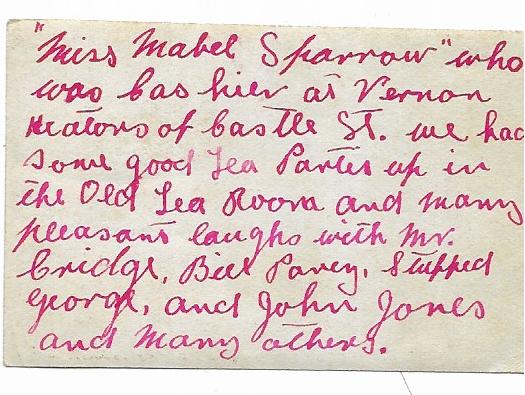 "Miss Mabel Sparrow" who
was Cashier at Vernon
Heatons of Castle St. we had
some good Tea Parties up in
the Old Tea Room and many
pleasant laughs with Mr.
Cridge, Bill Pavey, Stupped
George, and John Jones
and many others.